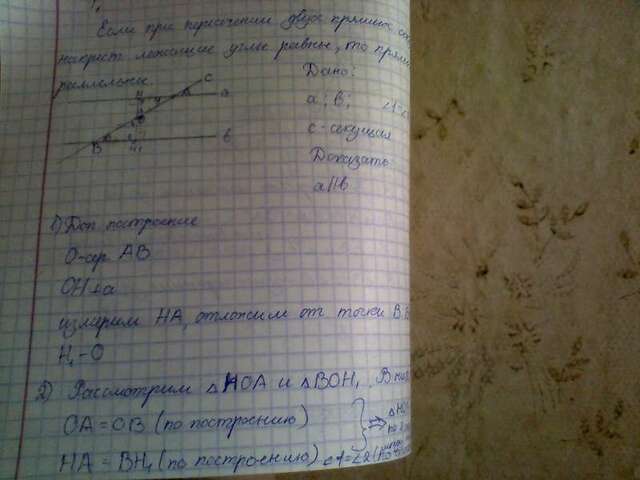 Если при пересечении двух прямых
накрест лежащие углы равны, то
раллельны
Дано:
a; b;
c - секущая
Доказать
a||b
c
a
b
A
B
H
O
H₁
1) Доп построение
O-ср AB
OH⊥a
измерим HA, отложим от точки B
H₁-O
2) Рассмотрим △HOA и △BOH₁
OA = OB (по построению)
HA = BH₁ (по построению)